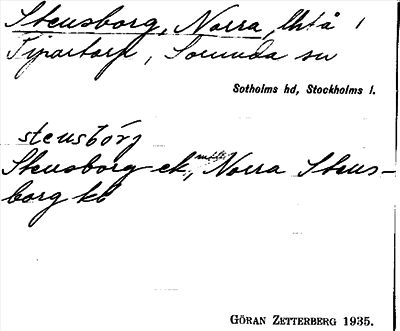 Stensborg, Norra, lhtå i
Tipartorp, Sorunda sn
Sotholms hd, Stockholms l.
stensbórj
Stensborg ek, Norra Stens-
borg kb
GÖRAN ZETTERBERG 1935.